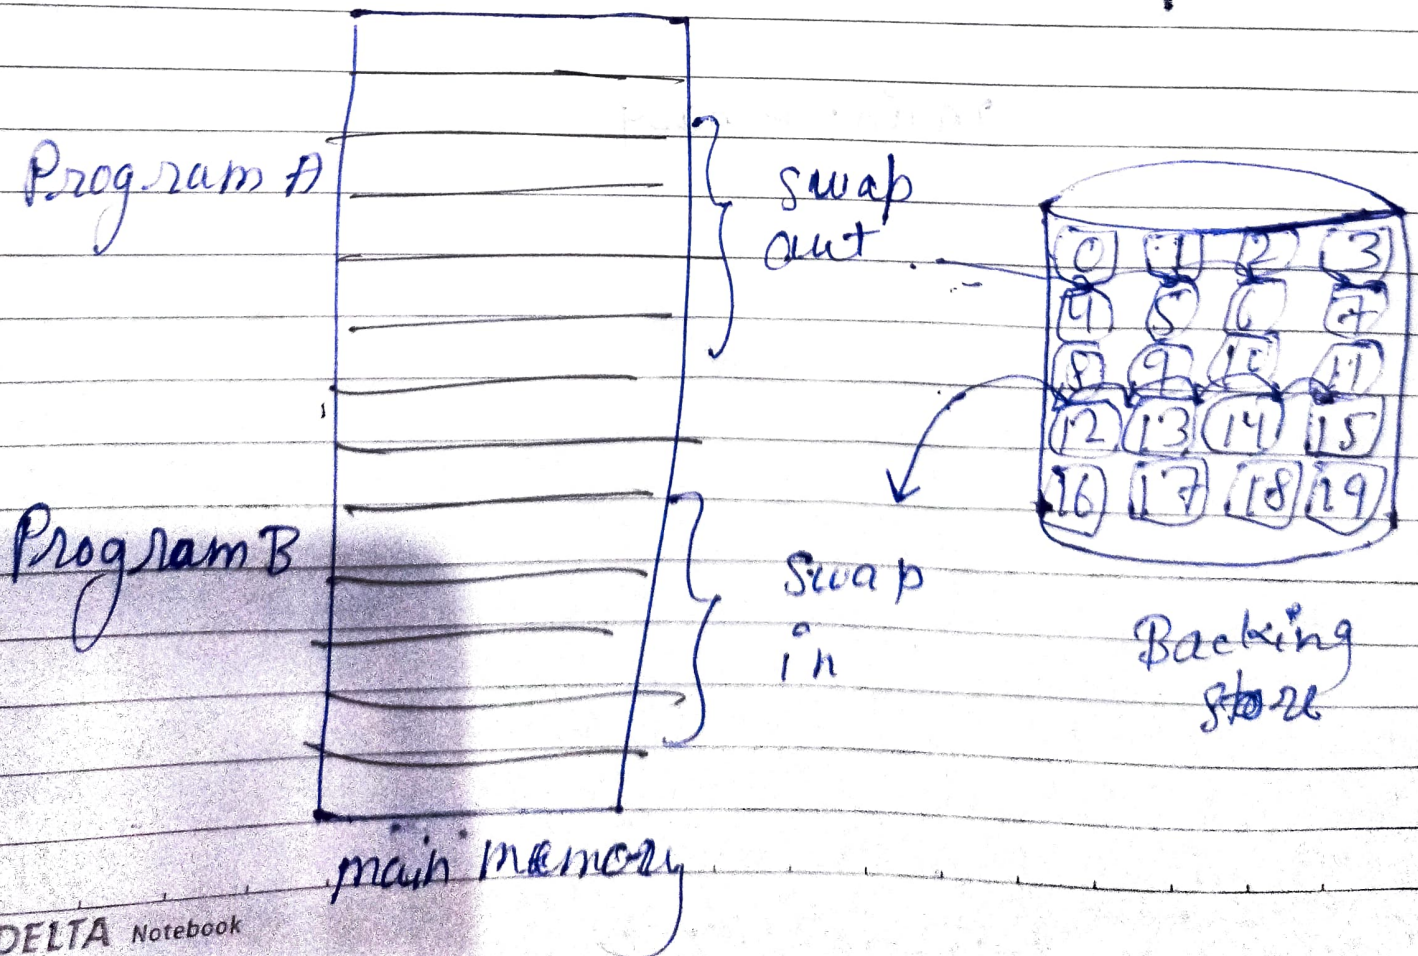 Program A
swap
out
0 1 2 3
4 5 6 7
8 9 10 11
12 13 14 15
16 17 18 19
Program B
swap
in
Backing
store
main memory
DELTA Notebook